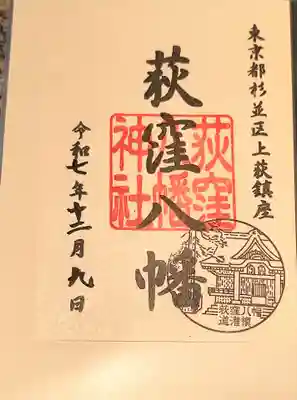 東京都杉並区上荻鎮座
荻窪八幡
荻窪
八幡
神社
令和七年十二月九日
荻窪八幡